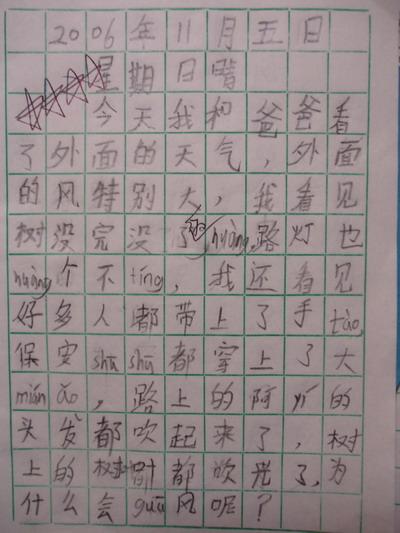 2006年11月五日
星期日 晴
今天我和爸爸看
了外面的天气,外面
的风特别大,我看见
树没完没了的huàng,路灯也
huàng个不tíng,我还看见
好多人都带上了手tào,
保安shū shū都穿上了大
mián ǎo,路上的阿yí的
头发都吹起来了,树
上的树叶都吹光了,为
什么会guā风呢?